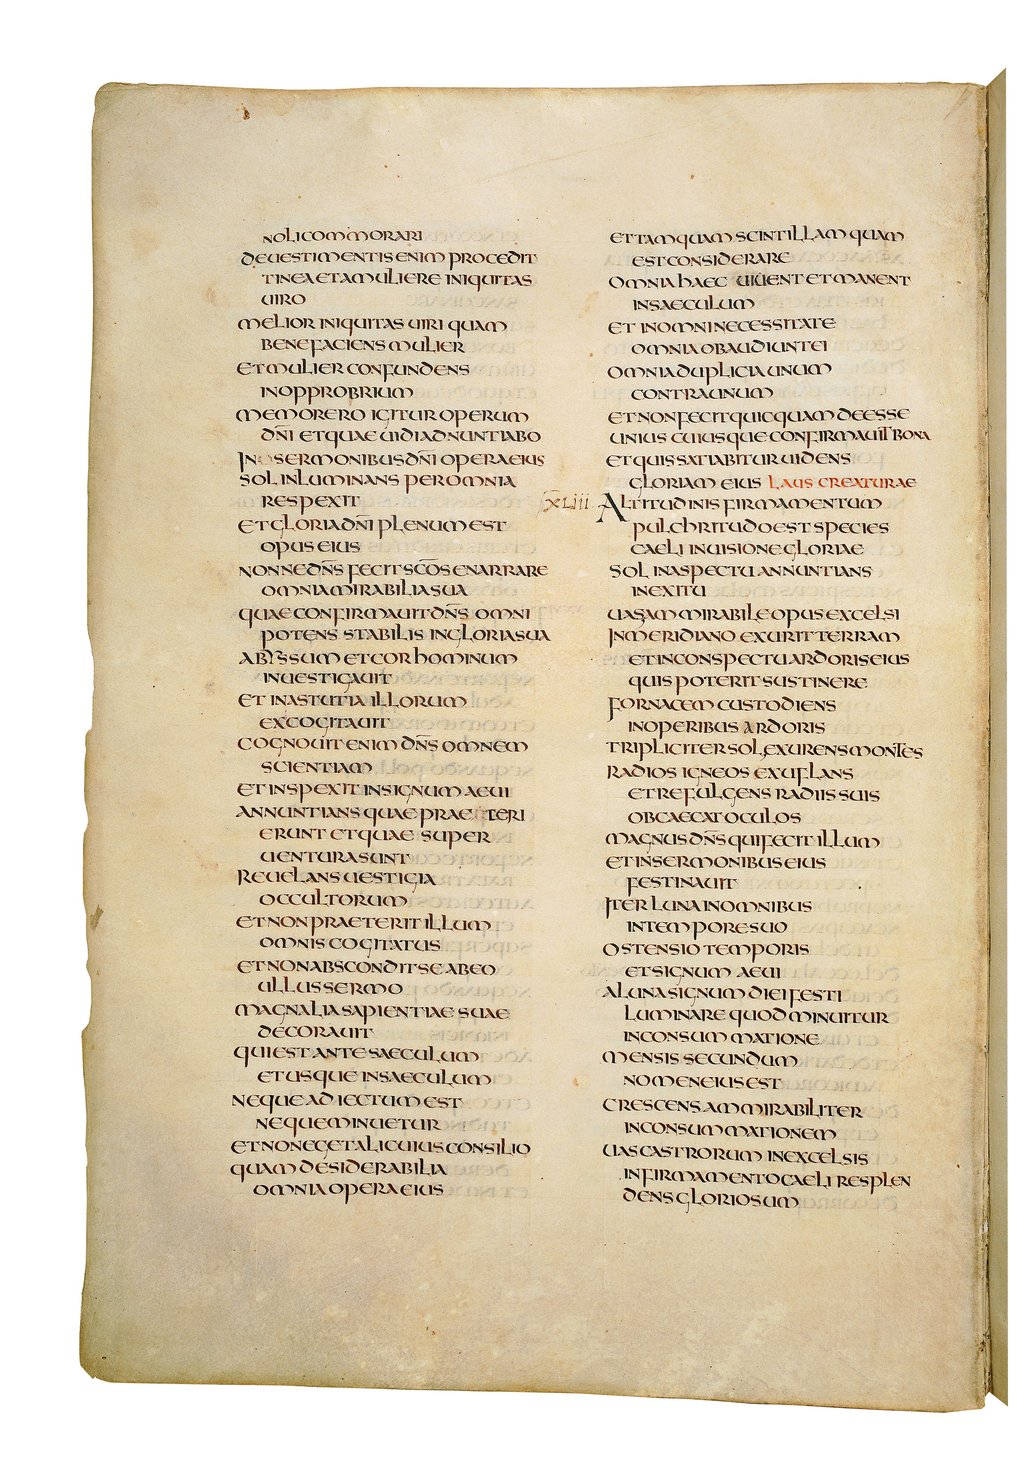 NOLI COMMORARI
DE UESTIMENTIS ENIM PROCEDIT
TINEA ET A MULIERE INIQUITAS
UIRO
MELIOR INIQUITAS UIRI QUAM
BENEFACIENS MULIER
ET MULIER CONFUNDENS
IN OPPROBRIUM
MEMOR ERO IGITUR OPERUM
DN̄I ET QUAE UIDI ADNUNTIABO
IN SERMONIBUS DN̄I OPERA EIUS
SOL INLUMINANS PER OMNIA
RESPEXIT
ET GLORIA DN̄I PLENUM EST
OPUS EIUS
NONNE DN̄S FECIT SC̄OS ENARRARE
OMNIA MIRABILIA SUA
QUAE CONFIRMAUIT DN̄S OMNI
POTENS STABILIS IN GLORIA SUA
ABYSSUM ET COR HOMINUM
INUESTIGAUIT
ET IN ASTUTIA ILLORUM
EXCOGITAUIT
COGNOUIT ENIM DN̄S OMNEM
SCIENTIAM
ET INSPEXIT IN SIGNUM AEUI
ANNUNTIANS QUAE PRAETERI
ERUNT ET QUAE SUPER
UENTURA SUNT
REUELANS UESTIGIA
OCCULTORUM
ET NON PRAETERIT ILLUM
OMNIS COGITATUS
ET NON ABSCONDIT SE AB EO
ULLUS SERMO
MAGNALIA SAPIENTIAE SUAE
DECORAUIT
QUI EST ANTE SAECULUM
ET USQUE IN SAECULUM
NEQUE ADIECTUM EST
NEQUE MINUETUR
ET NON EGET ALICUIUS CONSILIO
QUAM DESIDERABILIA
OMNIA OPERA EIUS
ET TAMQUAM SCINTILLAM QUAM
EST CONSIDERARE
OMNIA HAEC UIUENT ET MANENT
IN SAECULUM
ET IN OMNI NECESSITATE
OMNIA OBAUDIUNT EI
OMNIA DUPLICIA UNUM
CONTRA UNUM
ET NON FECIT QUICQUAM DEESSE
UNIUS CUIUSQUE CONFIRMAUIT BONA
ET QUIS SATIABITUR UIDENS
GLORIAM EIUS LAUS CREATURAE
XLIII ALTITUDINIS FIRMAMENTUM
PULCHRITUDO EST SPECIES
CAELI IN UISIONE GLORIAE
SOL IN ASPECTU ANNUNTIANS
IN EXITU
UAS AMMIRABILE OPUS EXCELSI
IN MERIDIANO EXURIT TERRAM
ET IN CONSPECTU ARDORIS EIUS
QUIS POTERIT SUSTINERE
FORNACEM CUSTODIENS
IN OPERIBUS ARDORIS
TRIPLICITER SOL EXURENS MONTES
RADIOS IGNEOS EXUFLANS
ET REFULGENS RADIIS SUIS
OBCAECAT OCULOS
MAGNUS DN̄S QUI FECIT ILLUM
ET IN SERMONIBUS EIUS
FESTINAUIT
ITER LUNA IN OMNIBUS
IN TEMPORE SUO
OSTENSIO TEMPORIS
ET SIGNUM AEUI
A LUNA SIGNUM DIEI FESTI
LUMINARE QUOD MINUITUR
IN CONSUMMATIONE
MENSIS SECUNDUM
NOMEN EIUS EST
CRESCENS AMMIRABILITER
IN CONSUMMATIONEM
UAS CASTRORUM IN EXCELSIS
IN FIRMAMENTO CAELI RESPLEN
DENS GLORIOSUM